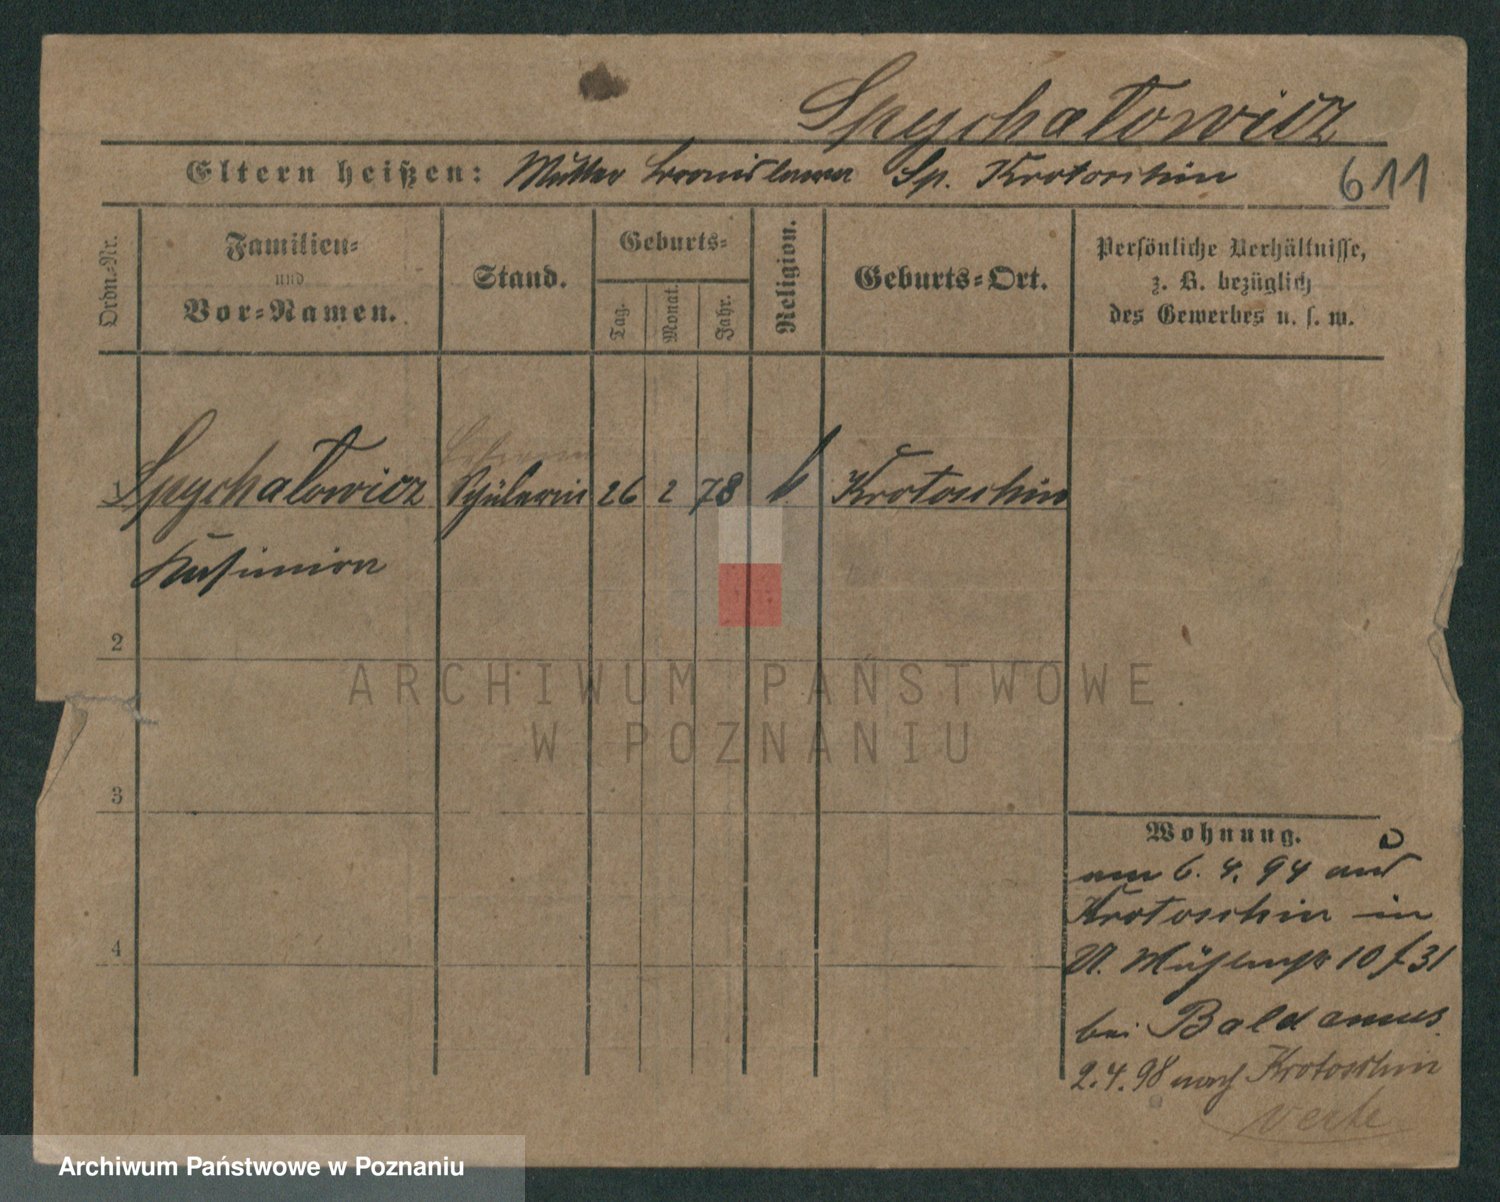 Spychatowicz
Eltern heißen: Mutter Bronislawa Sp. Krotoschin 611
Ordn.-Nr.
Familien-
und
Vor-Namen.
Stand.
Geburts-
Tag.
Monat.
Jahr.
Religion.
Geburts-Ort.
Persönliche Verhältnisse,
z. B. bezüglich
des Gewerbes u. s. w.
Lehrerin
1 Spychatowicz Schülerin 26 2 78 k Krotoschin
Kasimira
2
ARCHIWUM PAŃSTWOWE
W POZNANIU
3
Wohnung.
am 6. 4. 94 aus
Krotoschin in
4
U. Mühlenstr 10 f 31
bei Baldamus
2.4.98 nach Krotoschin
verte
Archiwum Państwowe w Poznaniu